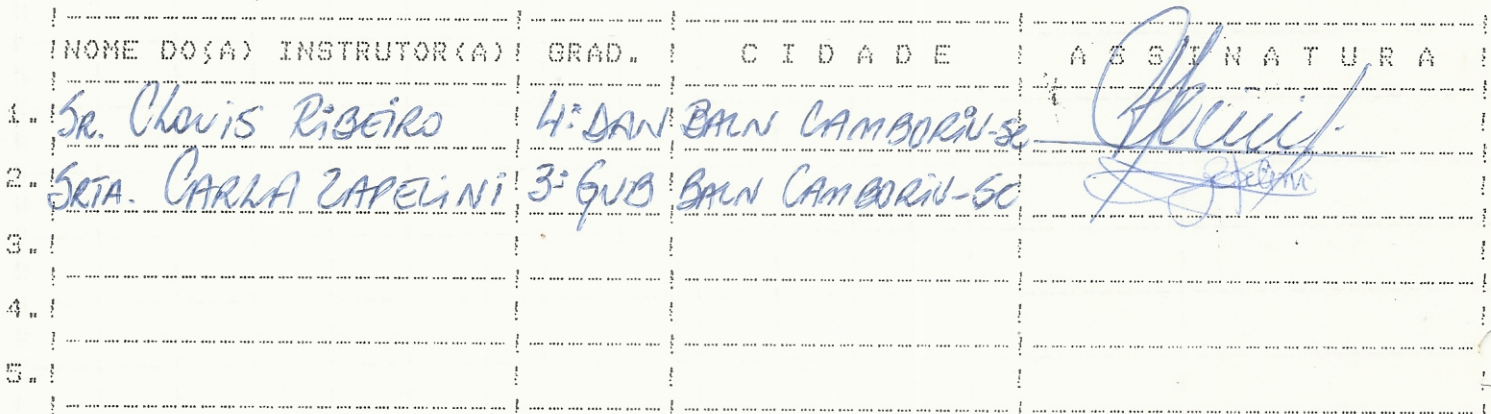 NOME DO(A) INSTRUTOR(A) GRAD. C I D A D E A S S I N A T U R A
1. SR. CLOVIS RIBEIRO 4º DAN BALN CAMBORIÚ-SC
2. SRTA. CARLA ZAPELINI 3º GUB BALN CAMBORIÚ-SC
3.
4.
5.